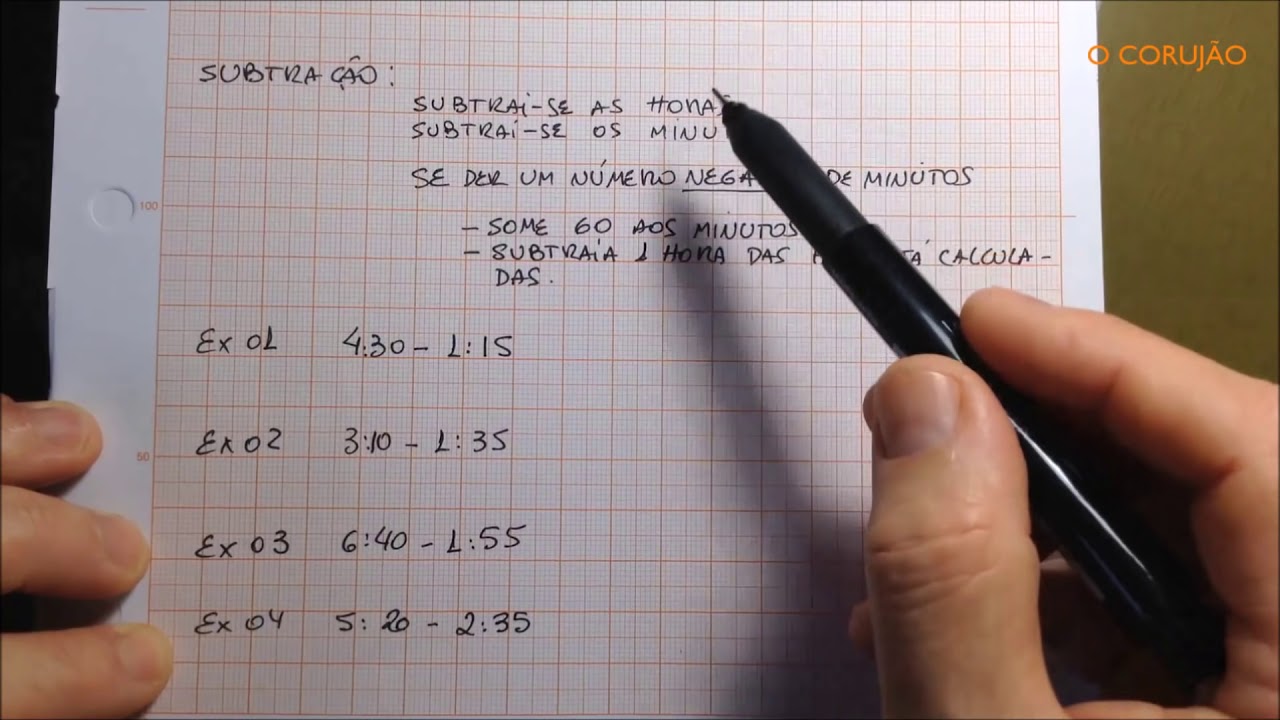 O CORUJÃO
SUBTRAÇÃO:
SUBTRAÍ-SE AS
SUBTRAÍ-SE OS
SE DER UM NÚMERO DE MINÚTOS
- SOME 60 AOS MINUTOS
- SUBTRAÍA 1 HORA DAS CALCULA-
DAS.
100
Ex 01 4:30 - 1:15
50
Ex 02 3:10 - 1:35
Ex 03 6:40 - 1:55
Ex 04 5:20 - 2:35